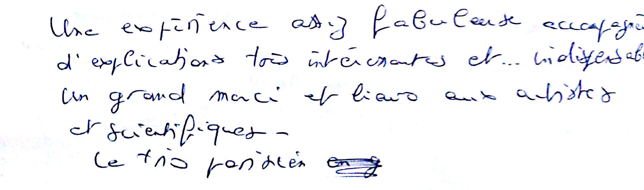 Une expérience assez fabuleuse accompagné
d'explications très intéressantes et... indispensab
Un grand merci et bravo aux artistes
et scientifiques -
Le trio parisien